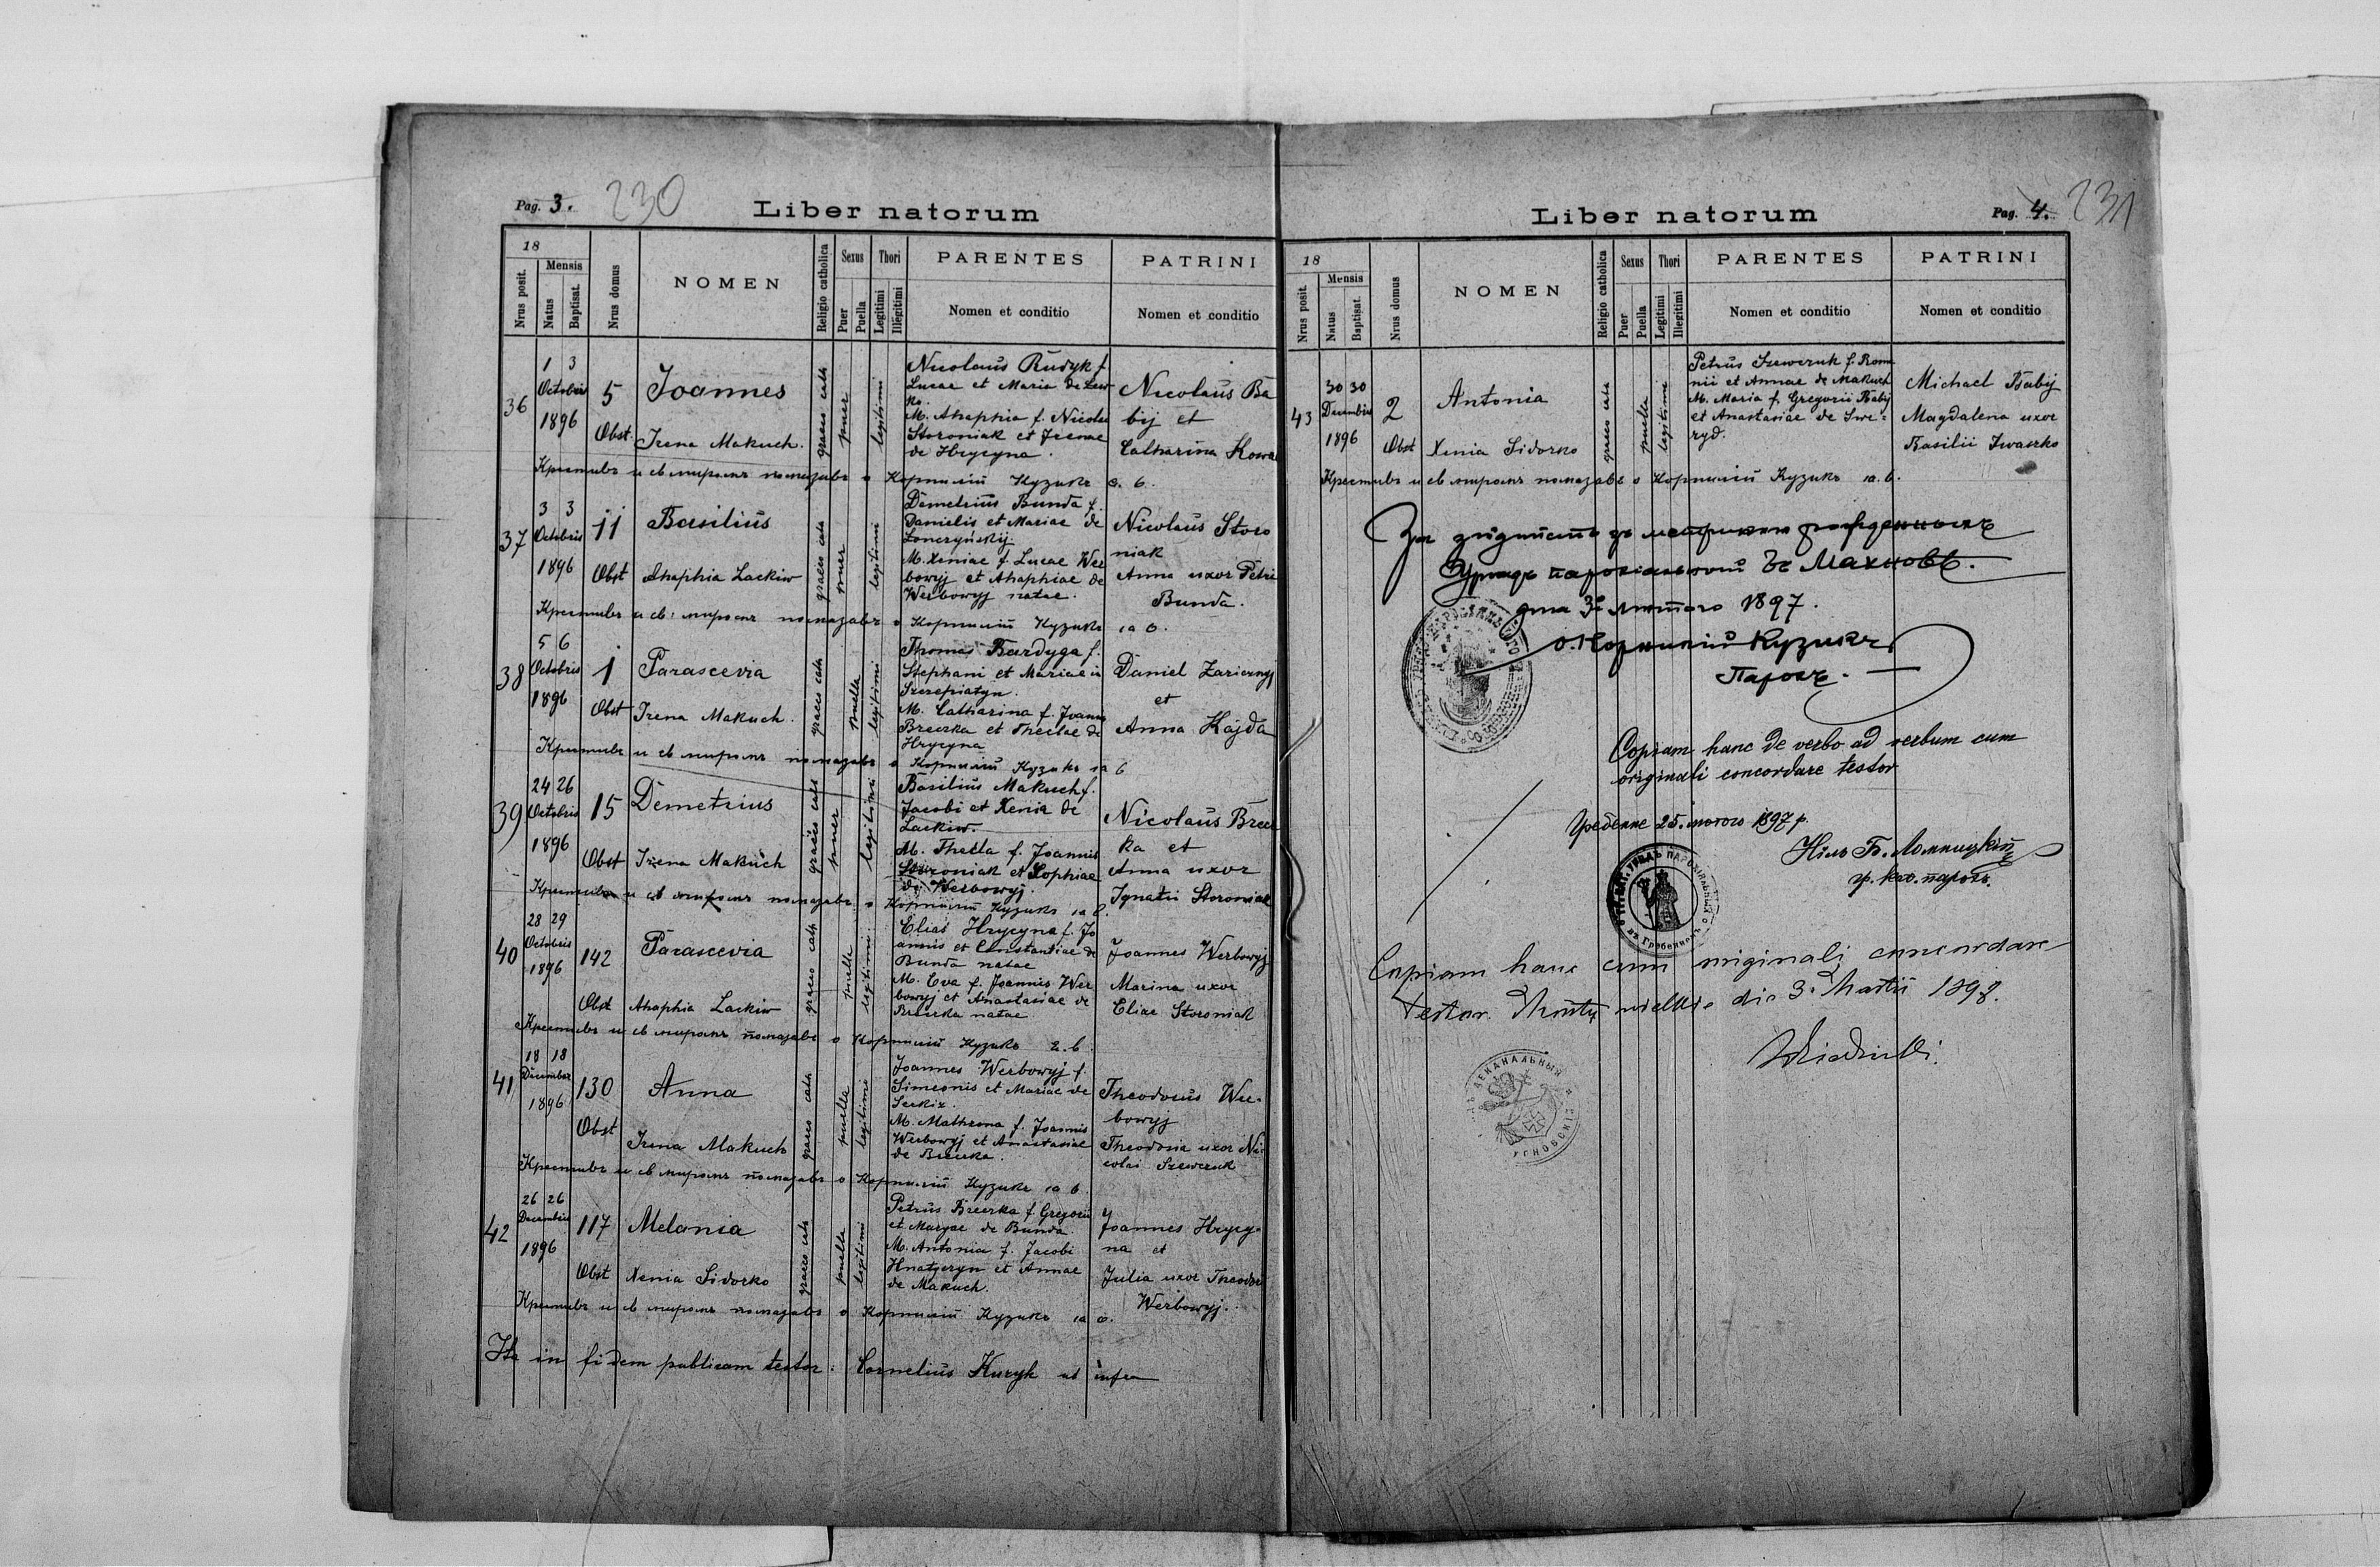 Pag. 3. 230
Liber natorum
18
Nrus posit.
Mensis
Natus
Baptisat.
Nrus domus
NOMEN
Religio catholica
Sexus
Puer
Puella
Thori
Legitimi
Illegitimi
PARENTES
Nomen et conditio
PATRINI
Nomen et conditio
36
1 3
Octobris
1896
5
Joannes
Obst. Irena Makuch.
graeco cath
puer
legitimi
Nicolaus Rudyk f.
Lucae et Maria de Lew
ko.
M. Ahaphia f. Nicolai
Storoniak et Irenae
de Hrycyna.
Nicolaus Ba
bij et
Catharina Kowa
Крестивъ и св мѵромъ помазавъ о Корнилій Кузикъ
37
3 3
Octobris
1896
11
Basilius
Obst Ahaphia Lackiw
graeco cath
puer
legitimi
Demetrius Bunda f.
Danielis et Mariae de
Lonczyńskij.
M. Xeniae f. Lucae Wer
bowyj et Ahaphiae de
Werbowyj natae.
Nicolaus Storo
niak
Anna uxor Petri
Bunda.
Крестивъ и св: мѵромъ помазавъ о Корнилій Кузикъ
38
5 6
Octobris
1896
1
Parascevia
Obst Irena Makuch.
graeco cath
puella
legitimi
Thomas Bardyga f.
Stephani et Mariae in
Szczepiatyn.
M. Catharina f. Joannis
Breczka et Theclae de
Hrycyna
Daniel Zaricznyj
et
Anna Kajda
Крестивъ и св мѵромъ помазавъ о Корнилій Кузикъ
39
24 26
Octobris
1896
15
Demetrius
Obst Irena Makuch
graeco cath
puer
legitimi
Basilius Makuch f.
Jacobi et Xenia de
Lackiw.
M. Thecla f. Joannis
Storoniak et Sophiae
de Werbowyj.
Nicolaus Brecz
ka et
Anna uxor
Ignatii Storoniak
Крестивъ и св мѵромъ помазавъ о Корнилій Кузикъ
40
28 29
Octobris
1896
142
Parascevia
Obst Ahaphia Lackiw
graeco cath
puella
legitimi
Elias Hrycyna f. Jo
annis et Constantiae de
Bunda natae
M. Eva f. Joannis Wer
bowyj et Anastasiae de
Breczka natae
Joannes Werbowyj
Marina uxor
Eliae Storoniak
Крестивъ и св мѵромъ помазавъ о Корнилій Кузикъ
41
18 18
December
1896
130
Anna
Obst
Irena Makuch
graeco cath
puella
legitimi
Joannes Werbowyj f.
Simeonis et Mariae de
M. Mathrona f. Joannis
Werbowyj et Anastasiae
de Breczka.
Theodorus Wer-
bowyj
Theodosia uxor Ni-
colai Szewczuk
Крестивъ и св мѵромъ помазавъ о Корнилій Кузикъ
42
26 26
Decembris
1896
117
Melania
Obst Xenia Sidorko
graeco cath
puella
legitimi
Petrus Breczka f Gregorii
et Maryae de Bunda.
M. Antonia f. Jacobi
et Annae
de Makuch.
Joannes Hrycy-
na et
Julia uxor Theodor
Werbowyj.
Крестивъ и св мѵромъ помазавъ о Корнилій Кузикъ
Ita in fidem publicam testor: Cornelius Kuzyk ut infra
Liber natorum
Pag. 4. 231
18
Nrus posit.
Mensis
Natus
Baptisat.
Nrus domus
NOMEN
Religio catholica
Sexus
Puer
Puella
Thori
Legitimi
Illegitimi
PARENTES
Nomen et conditio
PATRINI
Nomen et conditio
43
30 30
Decembris
1896
2
Antonia
Obst Xenia Sidorko
graeco cath
puella
legitimi
Petrus Szewczuk f. Roma
nii et Annae de Makuch
M. Maria f. Gregorii Babij
et Anastasiae de Swe-
ryd.
Michael Babij
Magdalena uxor
Basilii Iwaszko
Крестивъ и св мѵромъ помазавъ о Корнилій Кузикъ
Урядъ парохіальный въ Махновѣ.
дна 3 лютого 1897.
о. Корнилій Кузикъ
Парохъ.
Copiam hanc de verbo ad verbum cum
originali concordare testor
25. лютого 1897 р.
гр. кат. парохъ.
Copiam hanc cum originali concordare
testor. die 3. Martii 1897.